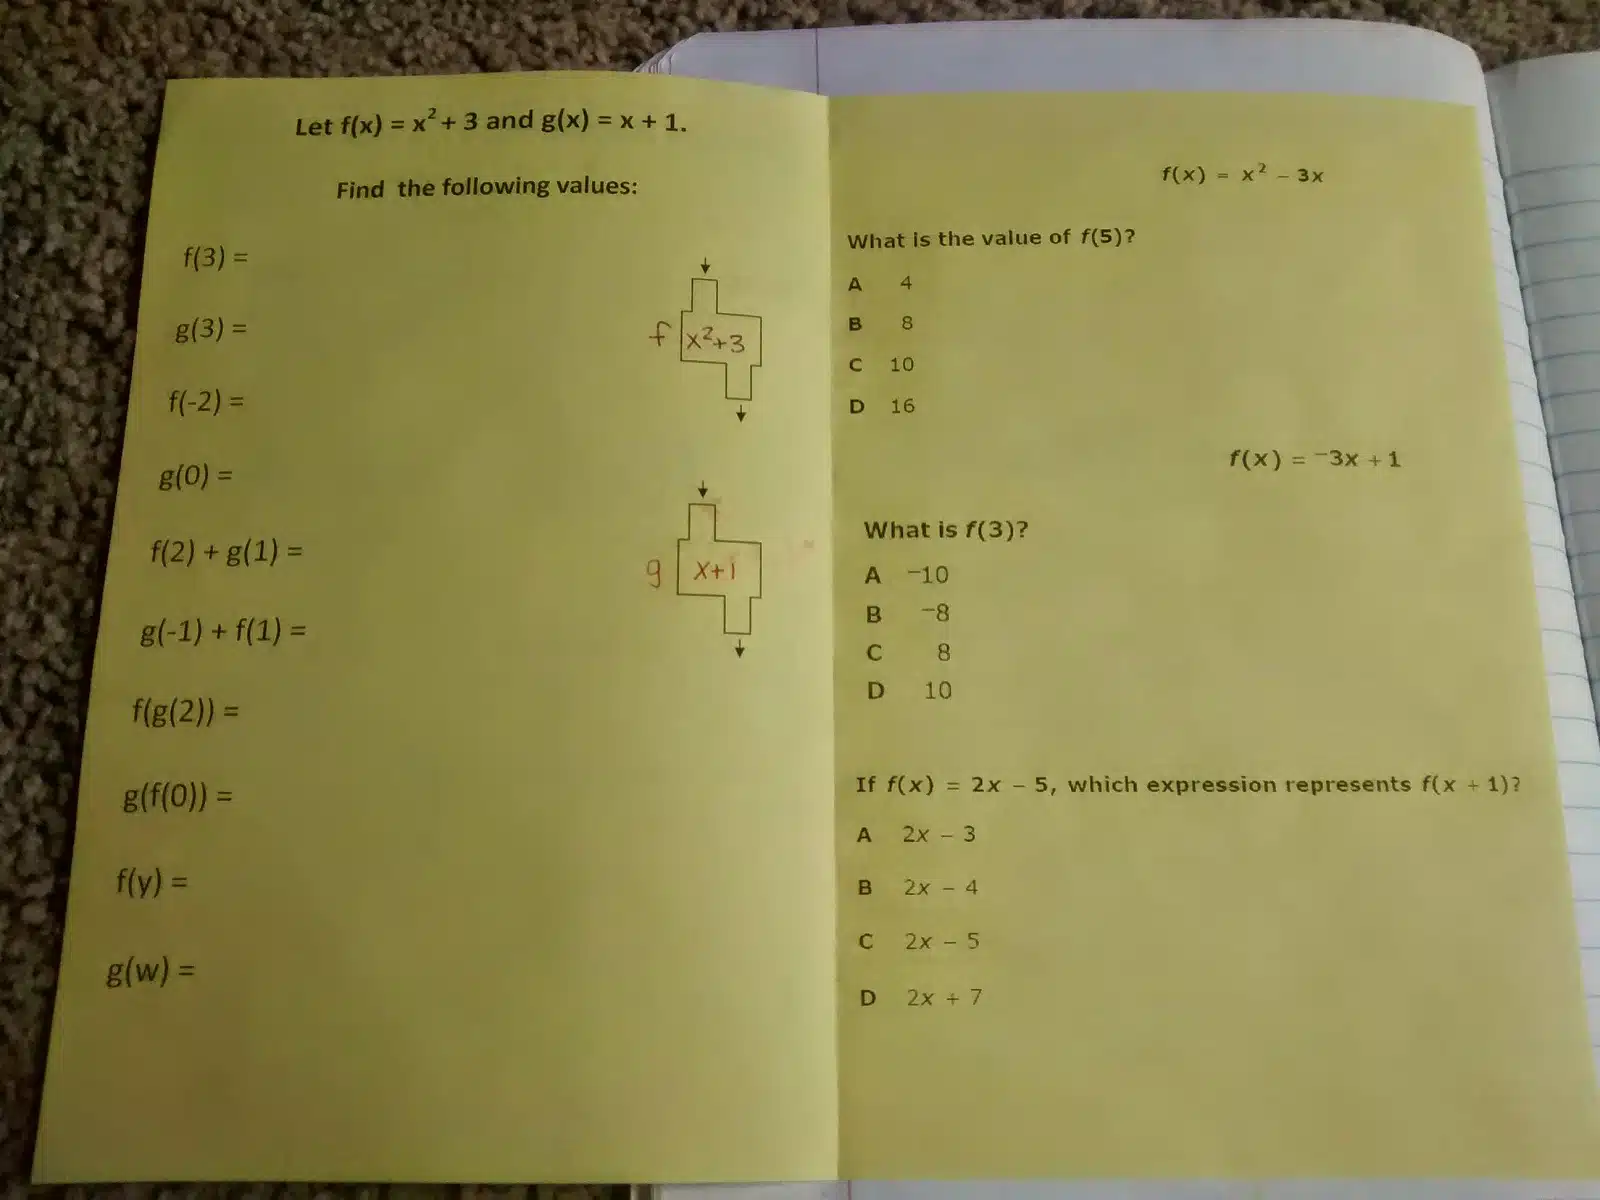 Let f(x) = x² + 3 and g(x) = x + 1.
Find the following values:
f(3) =
g(3) =
f(-2) =
g(0) =
f(2) + g(1) =
g(-1) + f(1) =
f(g(2)) =
g(f(0)) =
f(y) =
g(w) =
f x²+3
g x+1
f(x) = x² − 3x
What is the value of f(5)?
A 4
B 8
C 10
D 16
f(x) = ⁻3x + 1
What is f(3)?
A ⁻10
B ⁻8
C 8
D 10
If f(x) = 2x − 5, which expression represents f(x + 1)?
A 2x − 3
B 2x − 4
C 2x − 5
D 2x + 7